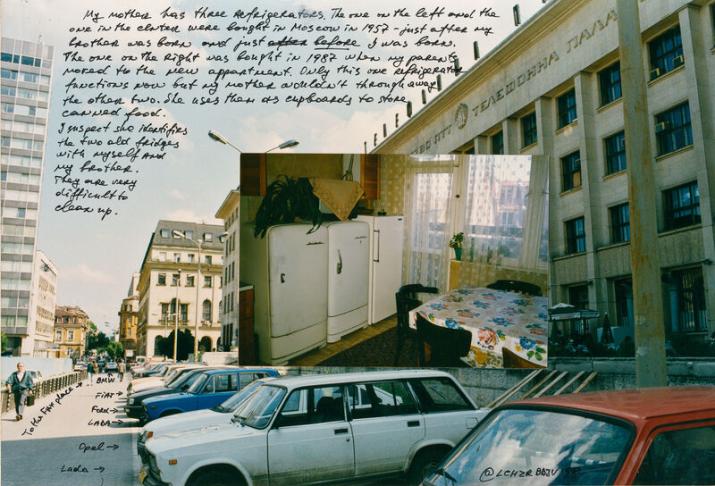 My mother has three refrigerators. The one on the left and the
one in the center were bought in Moscow in 1957 - just after my
brother was born and just after before I was born.
The one on the right was bought in 1987 when my parents
moved to the new appartment. Only this one refrigerator
functions now but my mother wouldn't through away
the other two. She uses them as cupboards to store
canned food.
I suspect she identifies
the two old fridges
with myself and
my brother.
They are very
difficult to
clean up.
ТЕЛЕФОННА ПАЛАТА
ПТТ
To the Fax place →
BMW →
FIAT →
Ford →
LADA →
Opel →
Lada →